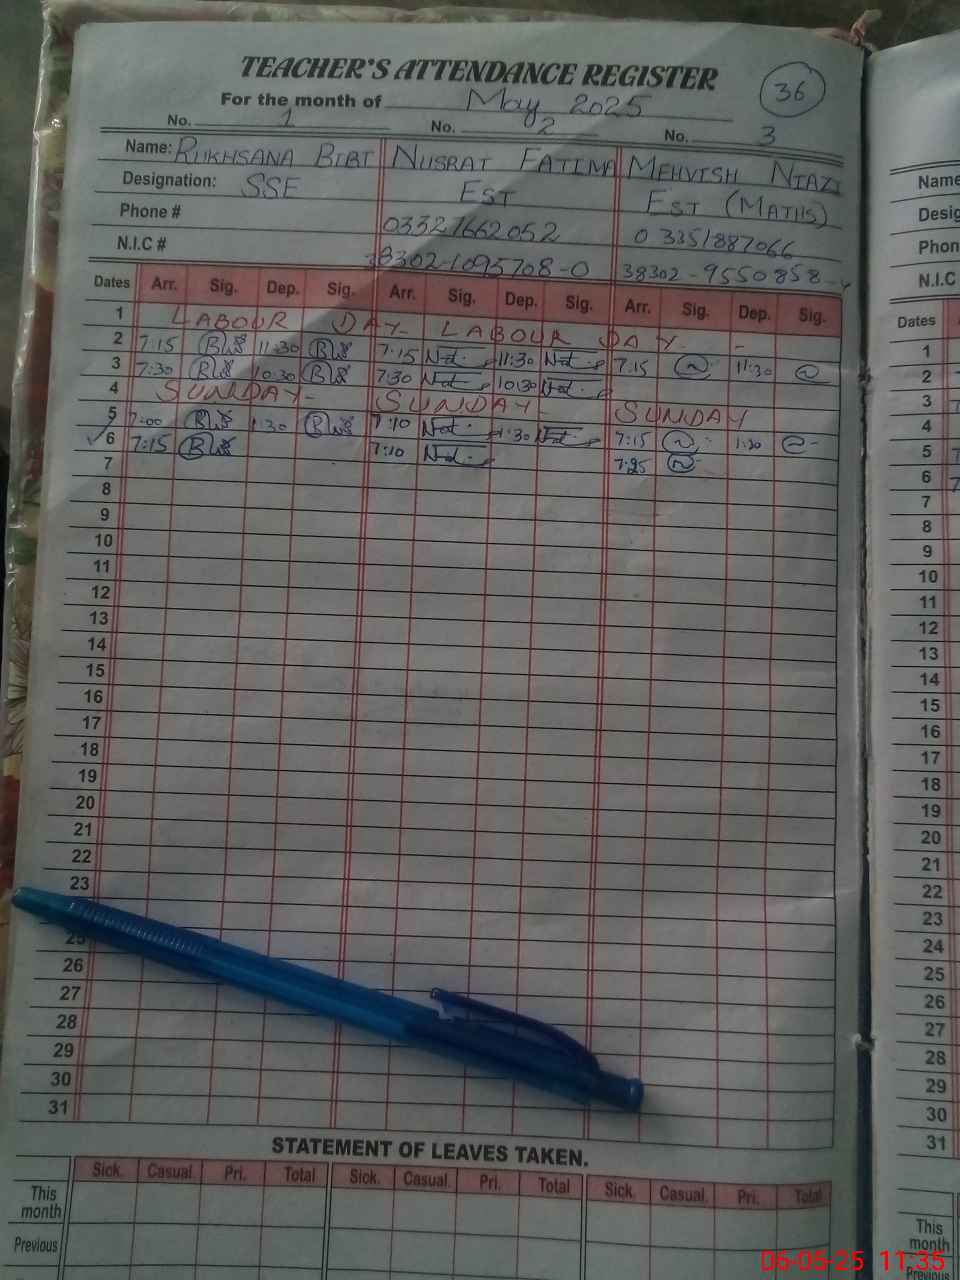 TEACHER'S ATTENDANCE REGISTER
36
For the month of May 2025
No. 1 No. 2 No. 3
Name: RUKHSANA BIBI NUSRAT FATIMA MEHVISH NIAZI
Designation: SSE EST EST (MATHS)
Phone # 03327662052 03351887066
N.I.C # 38302-1095708-0 38302-9550858-
Dates Arr. Sig. Dep. Sig. Arr. Sig. Dep. Sig. Arr. Sig. Dep. Sig.
1 LABOUR DAY LABOUR DAY
2 7:15 11:30 7:15 11:30 7:15 11:30
3 7:30 10:30 7:30 10:30
4 SUNDAY SUNDAY SUNDAY
5 7:00 1:30 7:10 1:30 7:15 1:30
6 7:15 7:10 7:25
7
8
9
10
11
12
13
14
15
16
17
18
19
20
21
22
23
25
26
27
28
29
30
31
STATEMENT OF LEAVES TAKEN.
Sick. Casual Pri. Total Sick. Casual. Pri. Total Sick. Casual. Pri. Total
This month
Previous
Name
Desig
Phon
N.I.C
Dates
1
2
3
4
5
6
7
8
9
10
11
12
13
14
15
16
17
18
19
20
21
22
23
24
25
26
27
28
29
30
31
This month
Previous
06-05-25 11:35